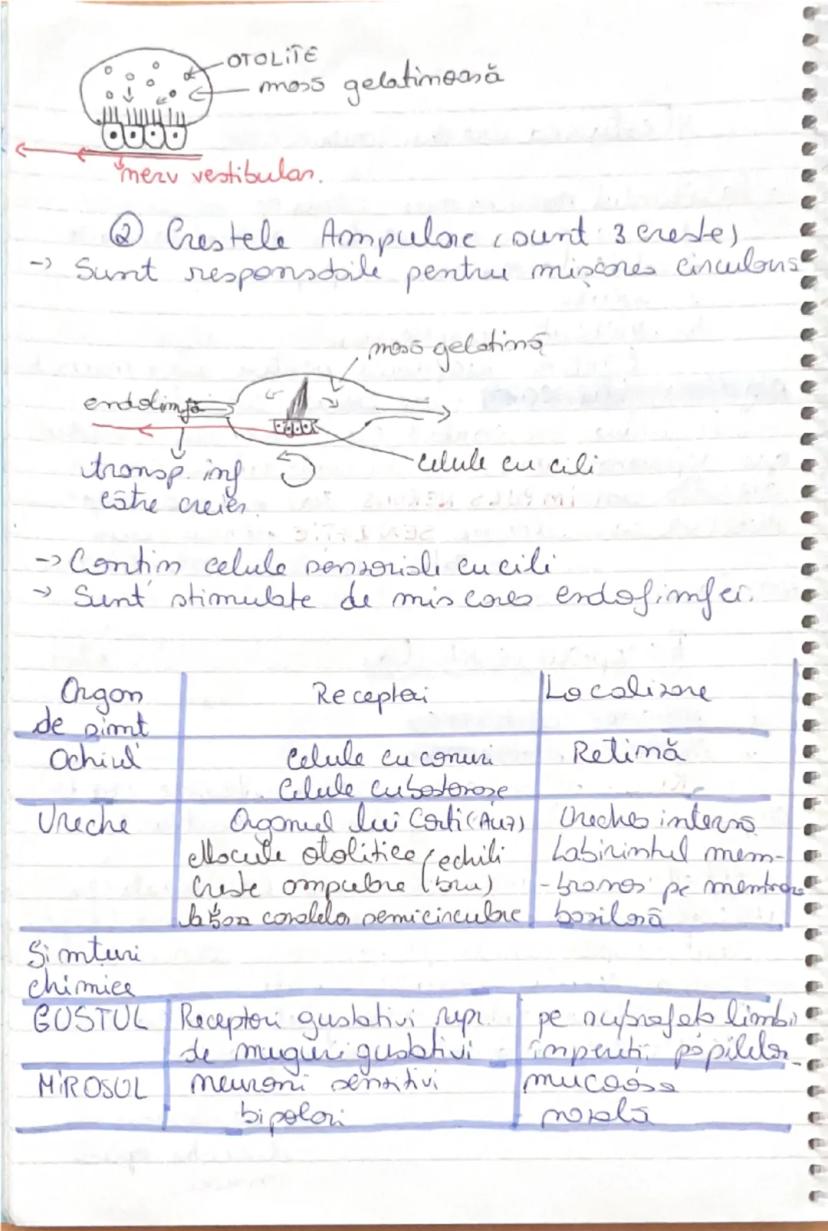 OTOLITE
masă gelatinoasă
nerv vestibular.
② Crestele Ampulare (sunt 3 creste)
-> Sunt responsabile pentru mișcarea circulară
masă gelatină
endolimfă
celule cu cili
transp inf
către creier.
-> Conțin celule senzoriale cu cili
-> Sunt stimulate de mișcarea endolimfei.
Organ de simt | Receptori | Localizare
Ochiul | Celule cu conuri | Retină
Celule cu bastonașe
Ureche | Organul lui Corti (Auz) | Urechea internă
Macule otolitice (echili | Labirintul mem-
Creste ampulare (bru) | -branos pe membrana
la baza canalelor semicirculare | bazilară
Simțuri
chimice
GUSTUL | Receptori gustativi repr. | pe suprafața limbii
de muguri gustativi | în pereții papilelor
MIROSUL | neuroni senzitivi | mucoasa
bipolari | nazală